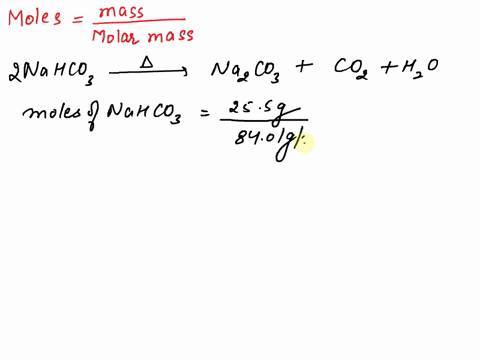 Moles = mass / Molar mass
2NaHCO₃ —Δ→ Na₂CO₃ + CO₂ + H₂O
moles of NaHCO₃ = 25.5g / 84.01g/